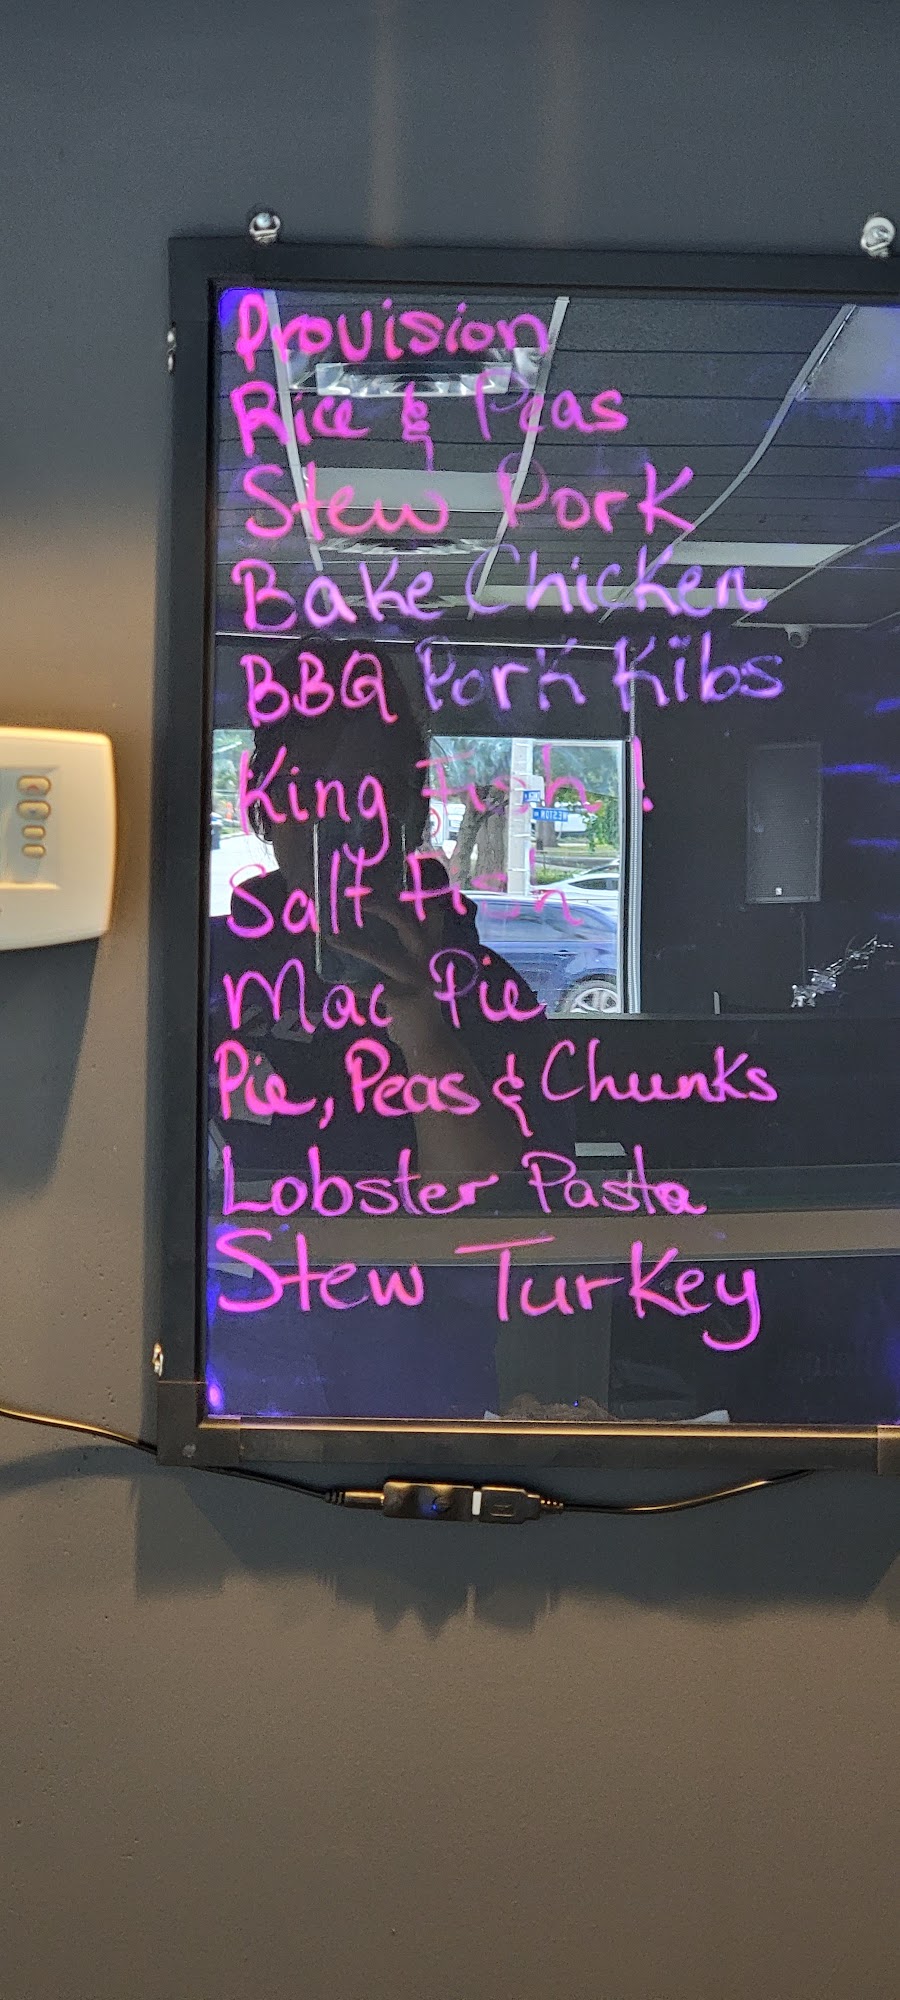 Provision
Rice & Peas
Stew Pork
Bake Chicken
BBQ Pork Ribs
King Fish!
Salt Fish
Mac Pie
Pie, Peas & Chunks
Lobster Pasta
Stew Turkey
WESTON